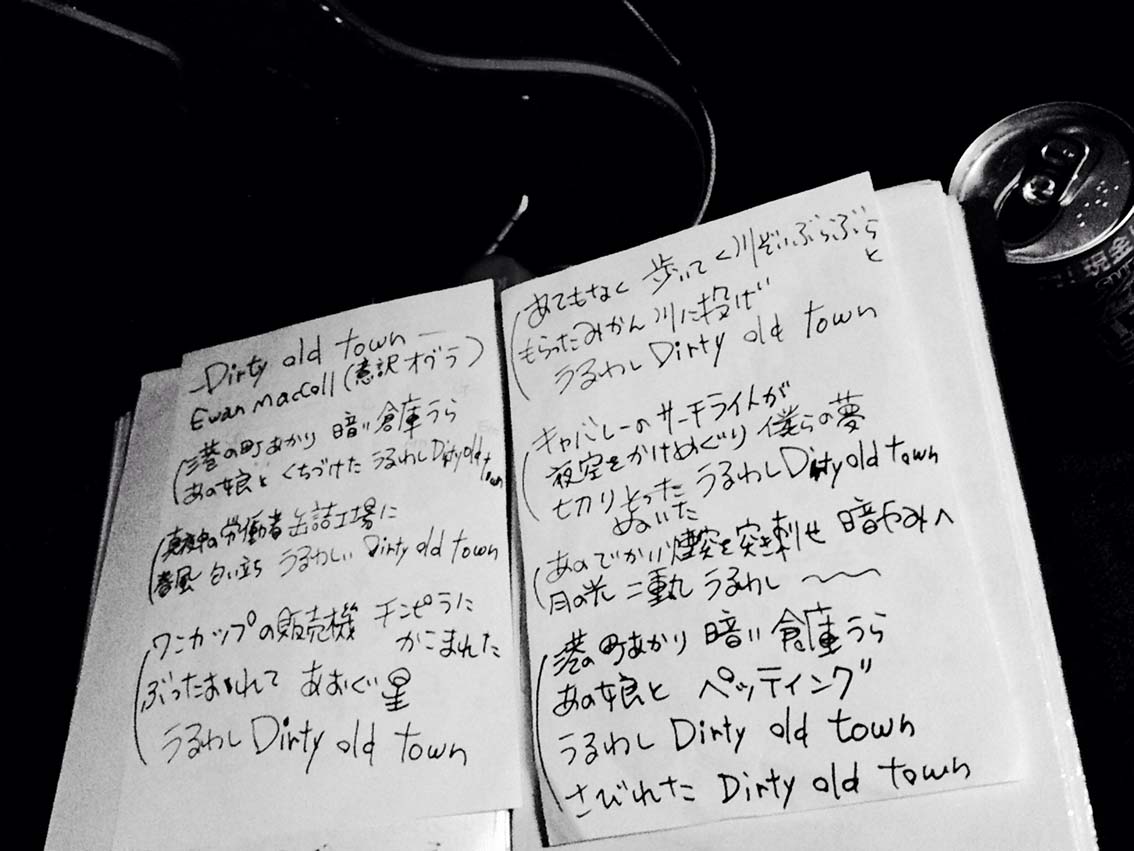 -Dirty old town-
Ewan MacColl (意訳 オグラ)
港の町あかり 暗い倉庫うら
あの娘と くちづけた うるわしDirty old town
真夜中の労働者 缶詰工場に
春風 匂い立ち うるわしい Dirty old town
ワンカップの販売機 チンピラに
かこまれた
ぶったおれて あおぐ星
うるわし Dirty old town
あてもなく 歩いてく 川ぞいぶらぶら
と
もらったみかん 川に投げ
うるわし Dirty old town
キャバレーの サーチライトが
夜空をかけめぐり 僕らの夢
切りとった うるわし Dirty old town
ぬいた
あのでかい 煙突を 突き刺せ 暗やみへ
月の光 二重丸 うるわし 〜〜
港の町あかり 暗い 倉庫うら
あの娘と ペッティング
うるわし Dirty old town
さびれた Dirty old town
現金